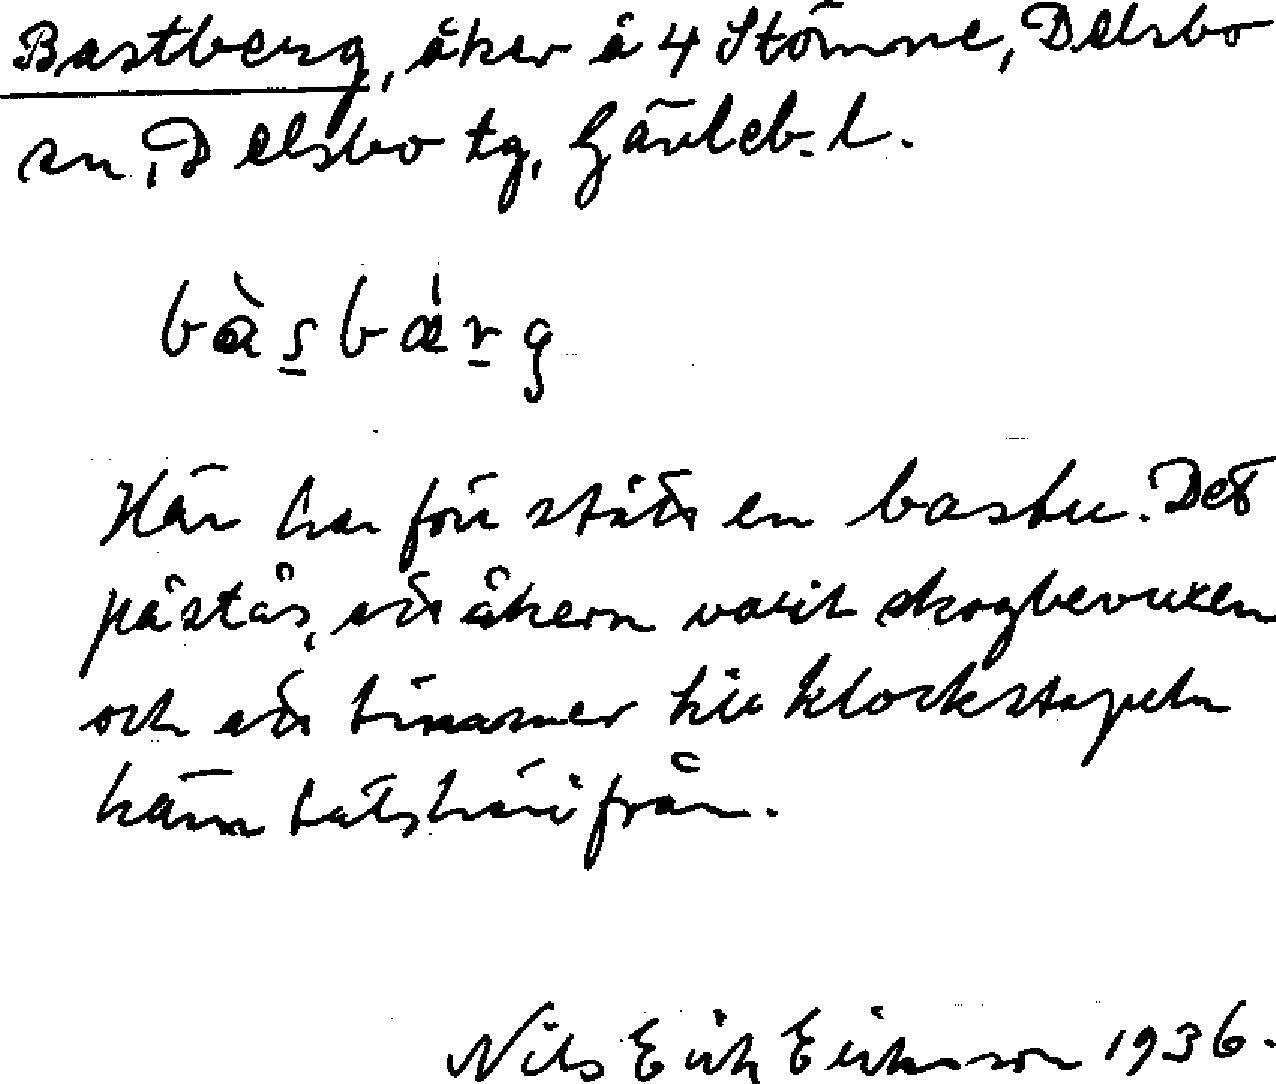 Bastberg, åker å 4 Stömne, Delsbo
sn, Delsbo tg, Gävleb. l.
bàs̱bǽṟg
Här har förr stått en bastu. Det
påstås, att åkern varit skogbevuxen
och att timmer till klockstapeln
hämtats härifrån.
Nils Erik Eriksson 1936.